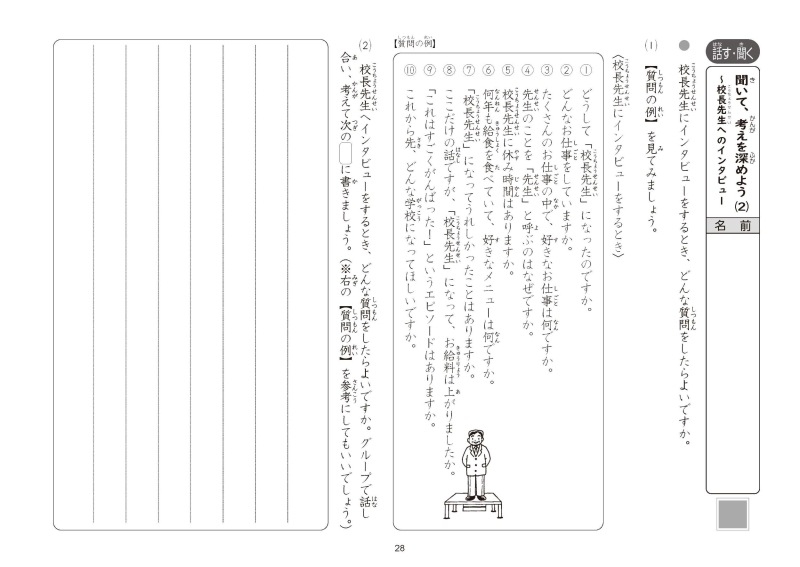 話す・聞く
聞いて、考えを深めよう (2)
～校長先生へのインタビュー
名前
● 校長先生にインタビューをするとき、どんな質問をしたらよいですか。
(1) 【質問の例】を見てみましょう。
〈校長先生にインタビューをするとき〉
【質問の例】
① どうして「校長先生」になったのですか。
② どんなお仕事をしていますか。
③ たくさんのお仕事の中で、好きなお仕事は何ですか。
④ 先生のことを「先生」と呼ぶのはなぜですか。
⑤ 校長先生に休み時間はありますか。
⑥ 何年も給食を食べていて、好きなメニューは何ですか。
⑦ 「校長先生」になってうれしかったことはありますか。
⑧ ここだけの話ですが、「校長先生」になって、お給料は上がりましたか。
⑨ 「これはすごくがんばった！」というエピソードはありますか。
⑩ これから先、どんな学校になってほしいですか。
(2) 校長先生へインタビューをするとき、どんな質問をしたらよいですか。グループで話し
合い、考えて次の　に書きましょう。（※右の【質問の例】を参考にしてもいいでしょう。）
28